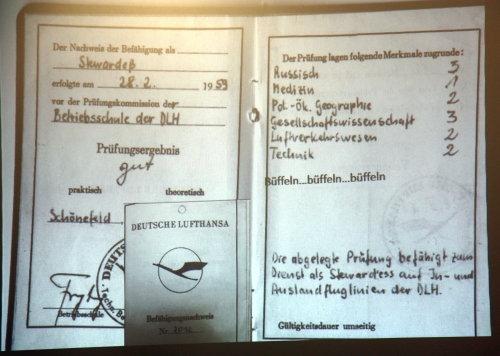 Der Nachweis der Befähigung als
Stewardeß
erfolgte am 28.2. 1959
vor der Prüfungskommission der
Betriebsschule der DLH
Prüfungsergebnis
gut
praktisch theoretisch
Schönefeld
Betriebsschule
DEUTSCHE LUFTHANSA
Befähigungsnachweis
Nr.
Der Prüfung lagen folgende Merkmale zugrunde:
Russisch 3
Medizin 1
Pol.-Ök. Geographie 2
Gesellschaftswissenschaft 3
Luftverkehrswesen 2
Technik 2
Büffeln...büffeln...büffeln
Die abgelegte Prüfung befähigt zum
Dienst als Stewardess auf In- und
Auslandfluglinien der DLH.
Gültigkeitsdauer umseitig